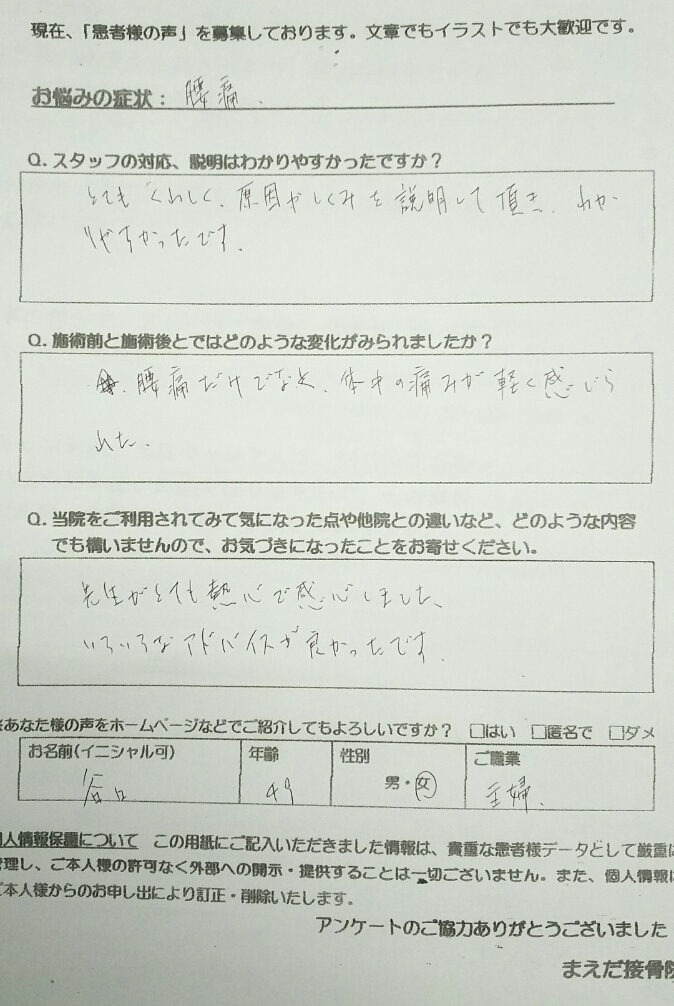 現在、「患者様の声」を募集しております。文章でもイラストでも大歓迎です。
お悩みの症状: 腰痛.
Q. スタッフの対応、説明はわかりやすかったですか?
とても くわしく、原因やしくみを説明して頂き、わか
りやすかったです.
Q. 施術前と施術後とではどのような変化がみられましたか?
腰痛だけでなく、体中の痛みが軽く感じら
れた.
Q. 当院をご利用されてみて気になった点や他院との違いなど、どのような内容
でも構いませんので、お気づきになったことをお寄せください。
先生がとても熱心で感心しました、
いろいろなアドバイスが良かったです.
※あなた様の声をホームページなどでご紹介してもよろしいですか? □はい □匿名で □ダメ
お名前(イニシャル可) 年齢 性別 ご職業
谷口 49 男・女 主婦.
個人情報保護について この用紙にご記入いただきました情報は、貴重な患者様データとして厳重に
管理し、ご本人様の許可なく外部への開示・提供することは一切ございません。また、個人情報は
ご本人様からのお申し出により訂正・削除いたします。
アンケートのご協力ありがとうございました
まえだ接骨院